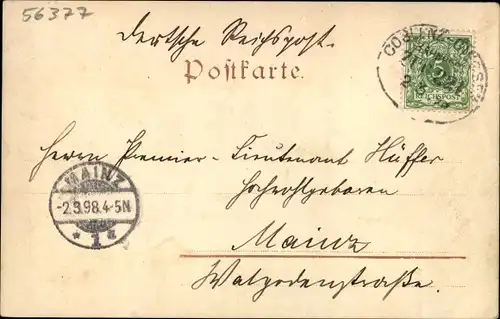 56377
Deutsche Reichspost.
Postkarte.
5
REICHSPOST
Herrn Premier-Lieutenant Hüffer
Hochwohlgeboren
MAINZ
-2.9.98.4-5N
* 1 *
Mainz
Walpodenstraße.